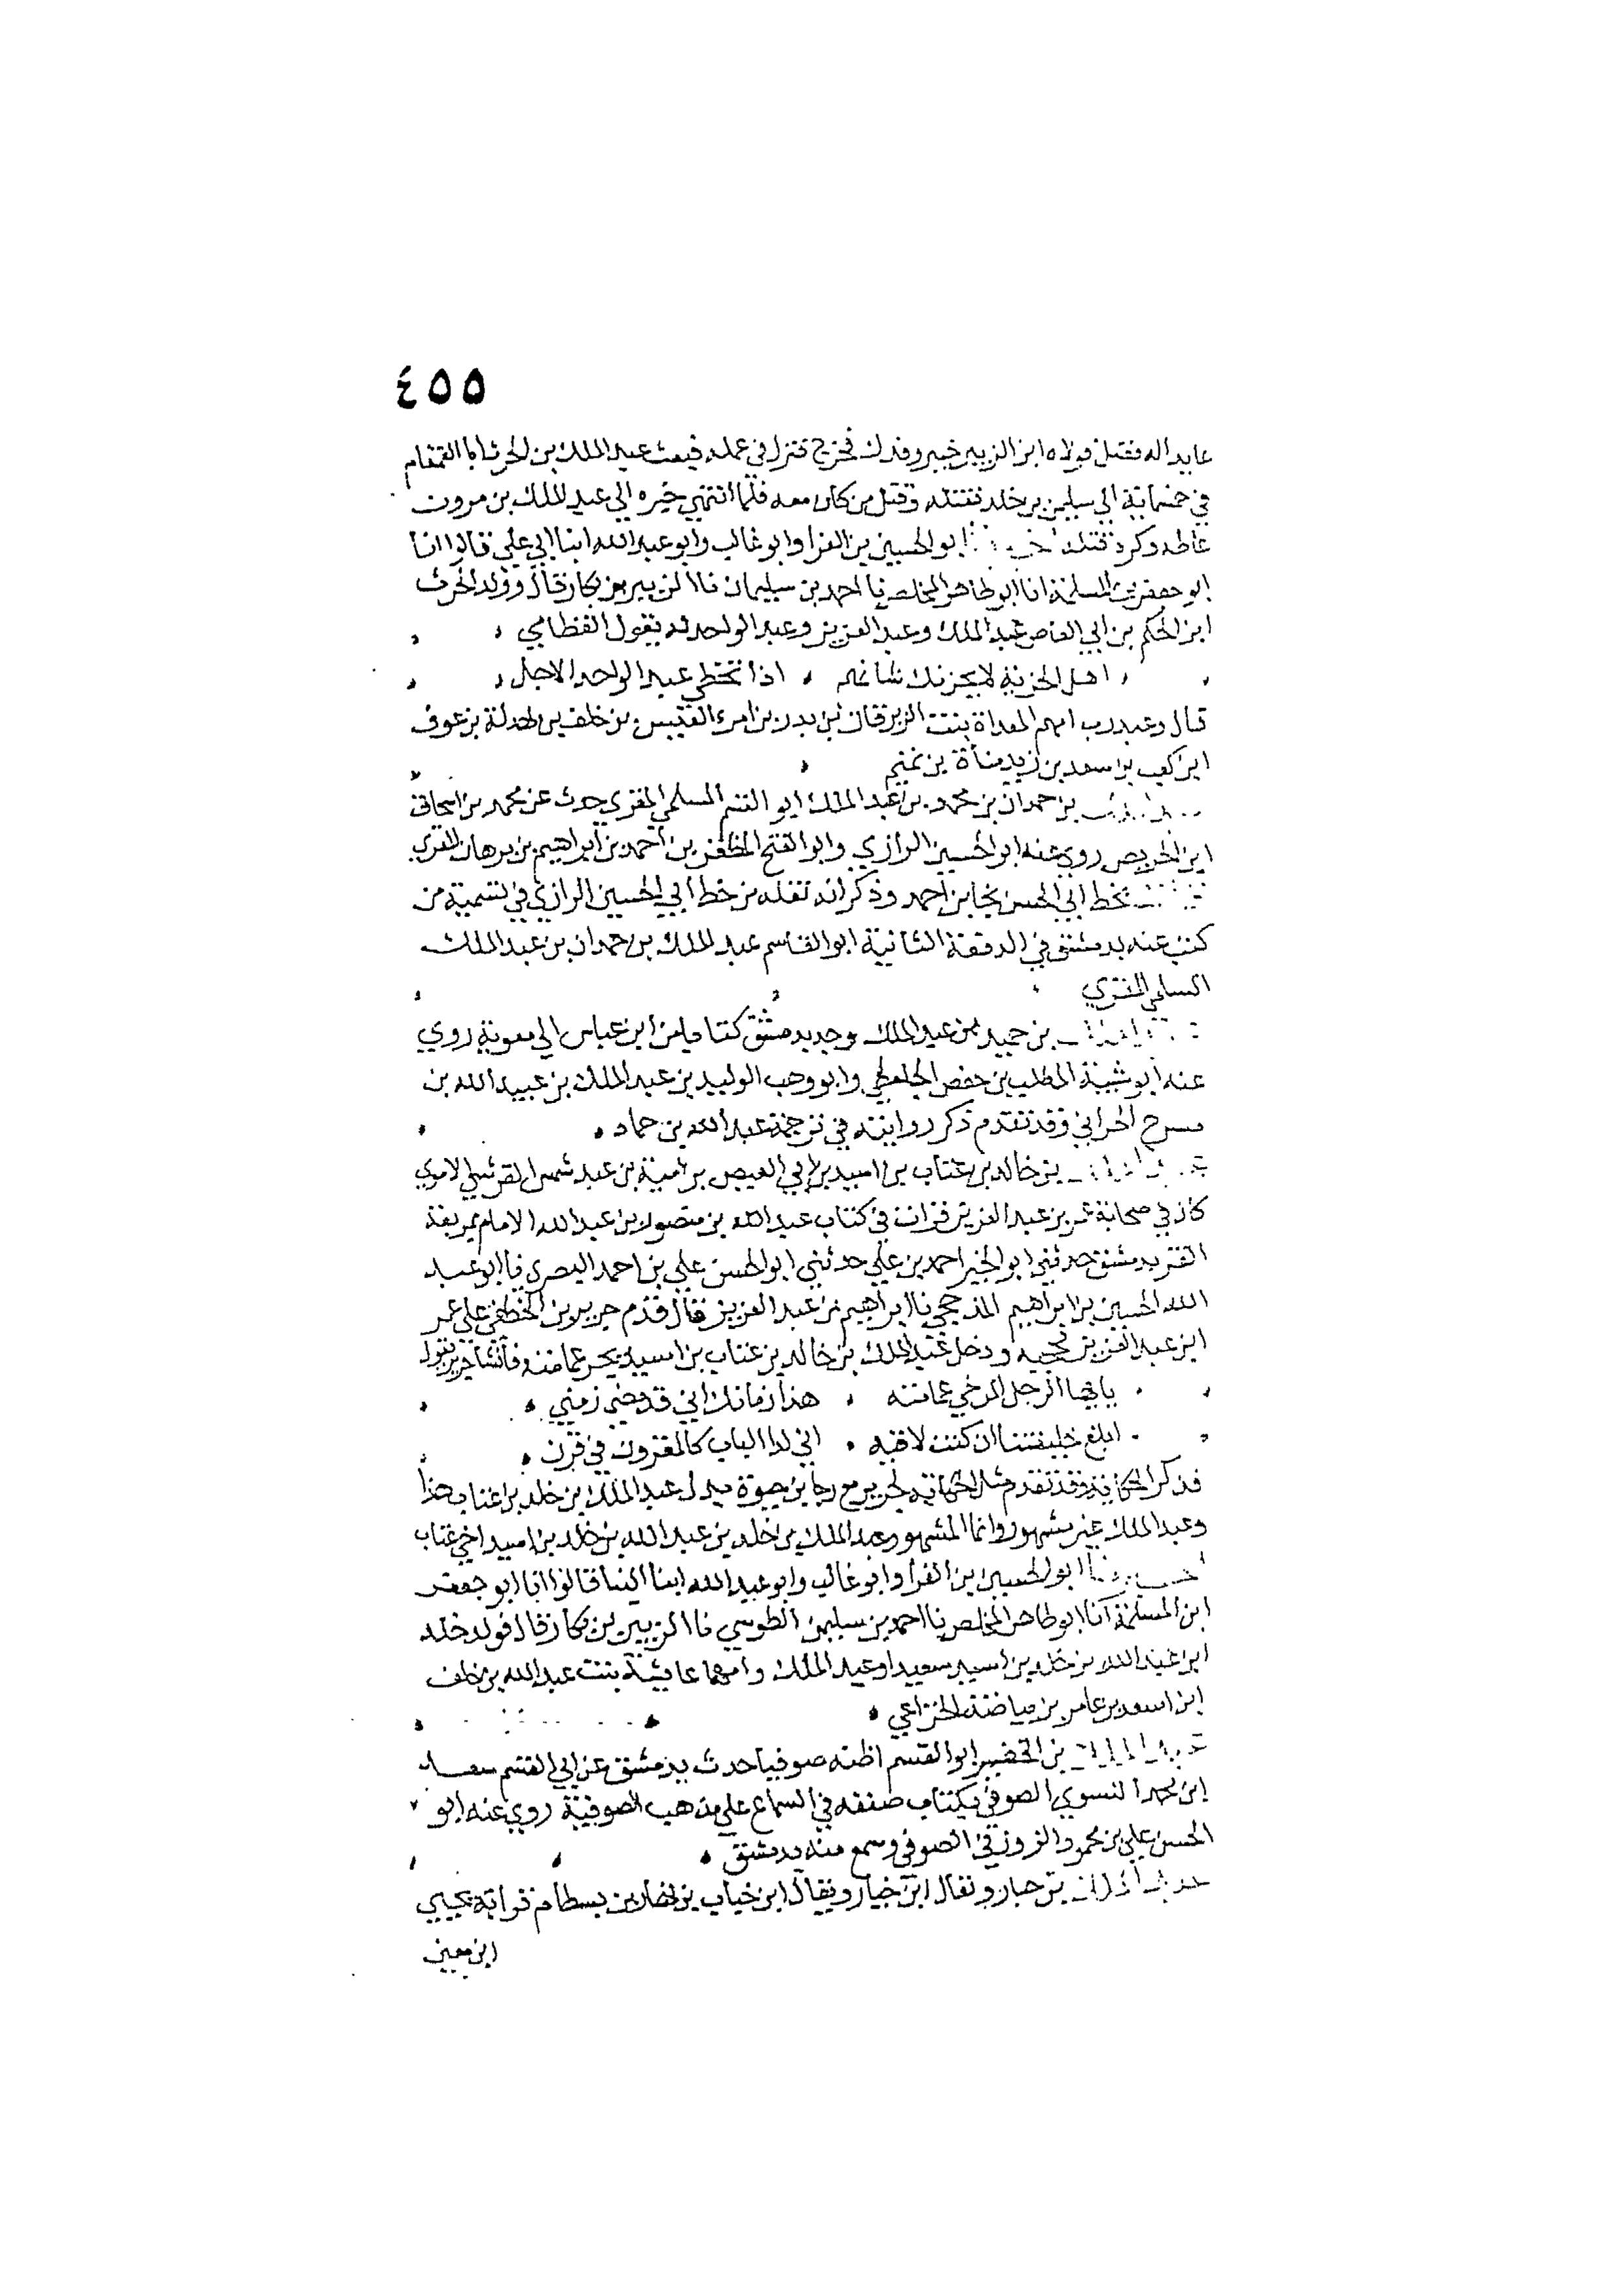 ٤٥٥
عابدا له فقتل فولاه ابن الزبير خيبر وفدك فخرج فنزل في عمله فبعث عبد الملك بن الحرث ابا القمقام
في خمسمائة الى سليمن بن خلد فقتله وقتل من كان معه فلما انتهى خبره الى عبد الملك بن مرون
غاظه وكره قتله اخبرنا ابو الحسين بن الفرا وابو غالب وابو عبد الله ابنا ابي علي قالوا انا
ابو جعفر بن المسلمة انا ابو طاهر المخلص نا احمد بن سليمان نا الزبير بن بكار قال وولد الحرث
ابن الحكم بن ابي العاص عبد الملك وعبد العزيز وعبد الواحد له يقول القطامي
اهل المدينة لا يحزنك شانهم اذا تخطى عبد الواحد الاجل
قال وعبد رب امهم بنت الزبرقان بن بدر بن امرء القيس بن خلف بن بهدلة بن عوف
ابن كعب بن سعد بن زيد مناة بن تميم
عبد الملك بن حمدان بن محمد بن عبد الملك ابو القسم السلمي المقري حدث عن محمد بن اسحاق
ابن الحريص روى عنه ابو الحسين الرازي وابو الفتح المظفر بن احمد بن ابراهيم بن برهان المقري
قرات بخط ابي الحسن نجا بن احمد وذكر انه نقله من خط ابي الحسين الرازي في تسمية من
كتب عنه بدمشق في الدفعة الثانية ابو القاسم عبد الملك بن حمدان بن عبد الملك
السلمي المقري
عبد الملك بن حميد بن عبد الملك وجد بدمشق كتابا من ابن عباس الى معوية روى
عنه ابو شيبة المطلب بن حفص وابو وهب الوليد بن عبد الملك بن عبيد الله بن
مسرح الحراني وقد تقدم ذكر روايته في ترجمة عبد الله بن حماد
عبد الملك بن خالد بن عتاب بن اسيد بن ابي العيص بن امية بن عبد شمس القرشي الاموي
كان في صحابة عمر بن عبد العزيز قرات في كتاب عبد الله بن منصور بن عبد الله الامام
بدمشق حدثني ابو الخير احمد بن علي حدثني ابو الحسن علي بن احمد البصري نا ابو عبد
الله الحسين بن ابراهيم المذحجي نا ابراهيم بن عبد العزيز قال قدم جرير بن الخطفى على عمر
ابن عبد العزيز فحجبه ودخل عبد الملك بن خالد بن عتاب بن اسيد يجر عمامته فانشا جرير يقول
يا ايها الرجل المرخي عمامته هذا زمانك اني قد مضى زمني
ابلغ خليفتنا ان كنت لاقيه اني لدا الباب كالمقرون في قرن
فذكر الحكاية وقد تقدم مثل الحكاية لجرير مع رجا بن حيوة بدل عبد الملك بن خلد بن عتاب هذا
وعبد الملك غير مشهور وانما المشهور عبد الملك بن خلد بن عبد الله بن خلد بن اسيد اخي عتاب
اخبرنا ابو الحسين بن الفرا وابو غالب وابو عبد الله ابنا البنا قالوا انا ابو جعفر
ابن المسلمة انا ابو طاهر المخلص نا احمد بن سليمن الطوسي نا الزبير بن بكار قال فولد خلد
ابن عبد الله بن خلد بن اسيد سعيدا وعبد الملك وامهما عايشة بنت عبد الله بن خلف
ابن اسعد بن عامر بن بياضة الخزاعي
عبد الملك بن الخضير ابو القسم اظنه صوفيا حدث بدمشق عن ابي القسم سعد
ابن محمد النسوي الصوفي بكتاب صنفه في السماع على مذهب الصوفية روى عنه ابو
الحسن علي بن محمود الزوزني الصوفي وسمع منه بدمشق
عبد الملك بن حبار ويقال ابن خيار ويقال ابن خباب بن نهار بن بسطام قرابة يحيي
ابن معين